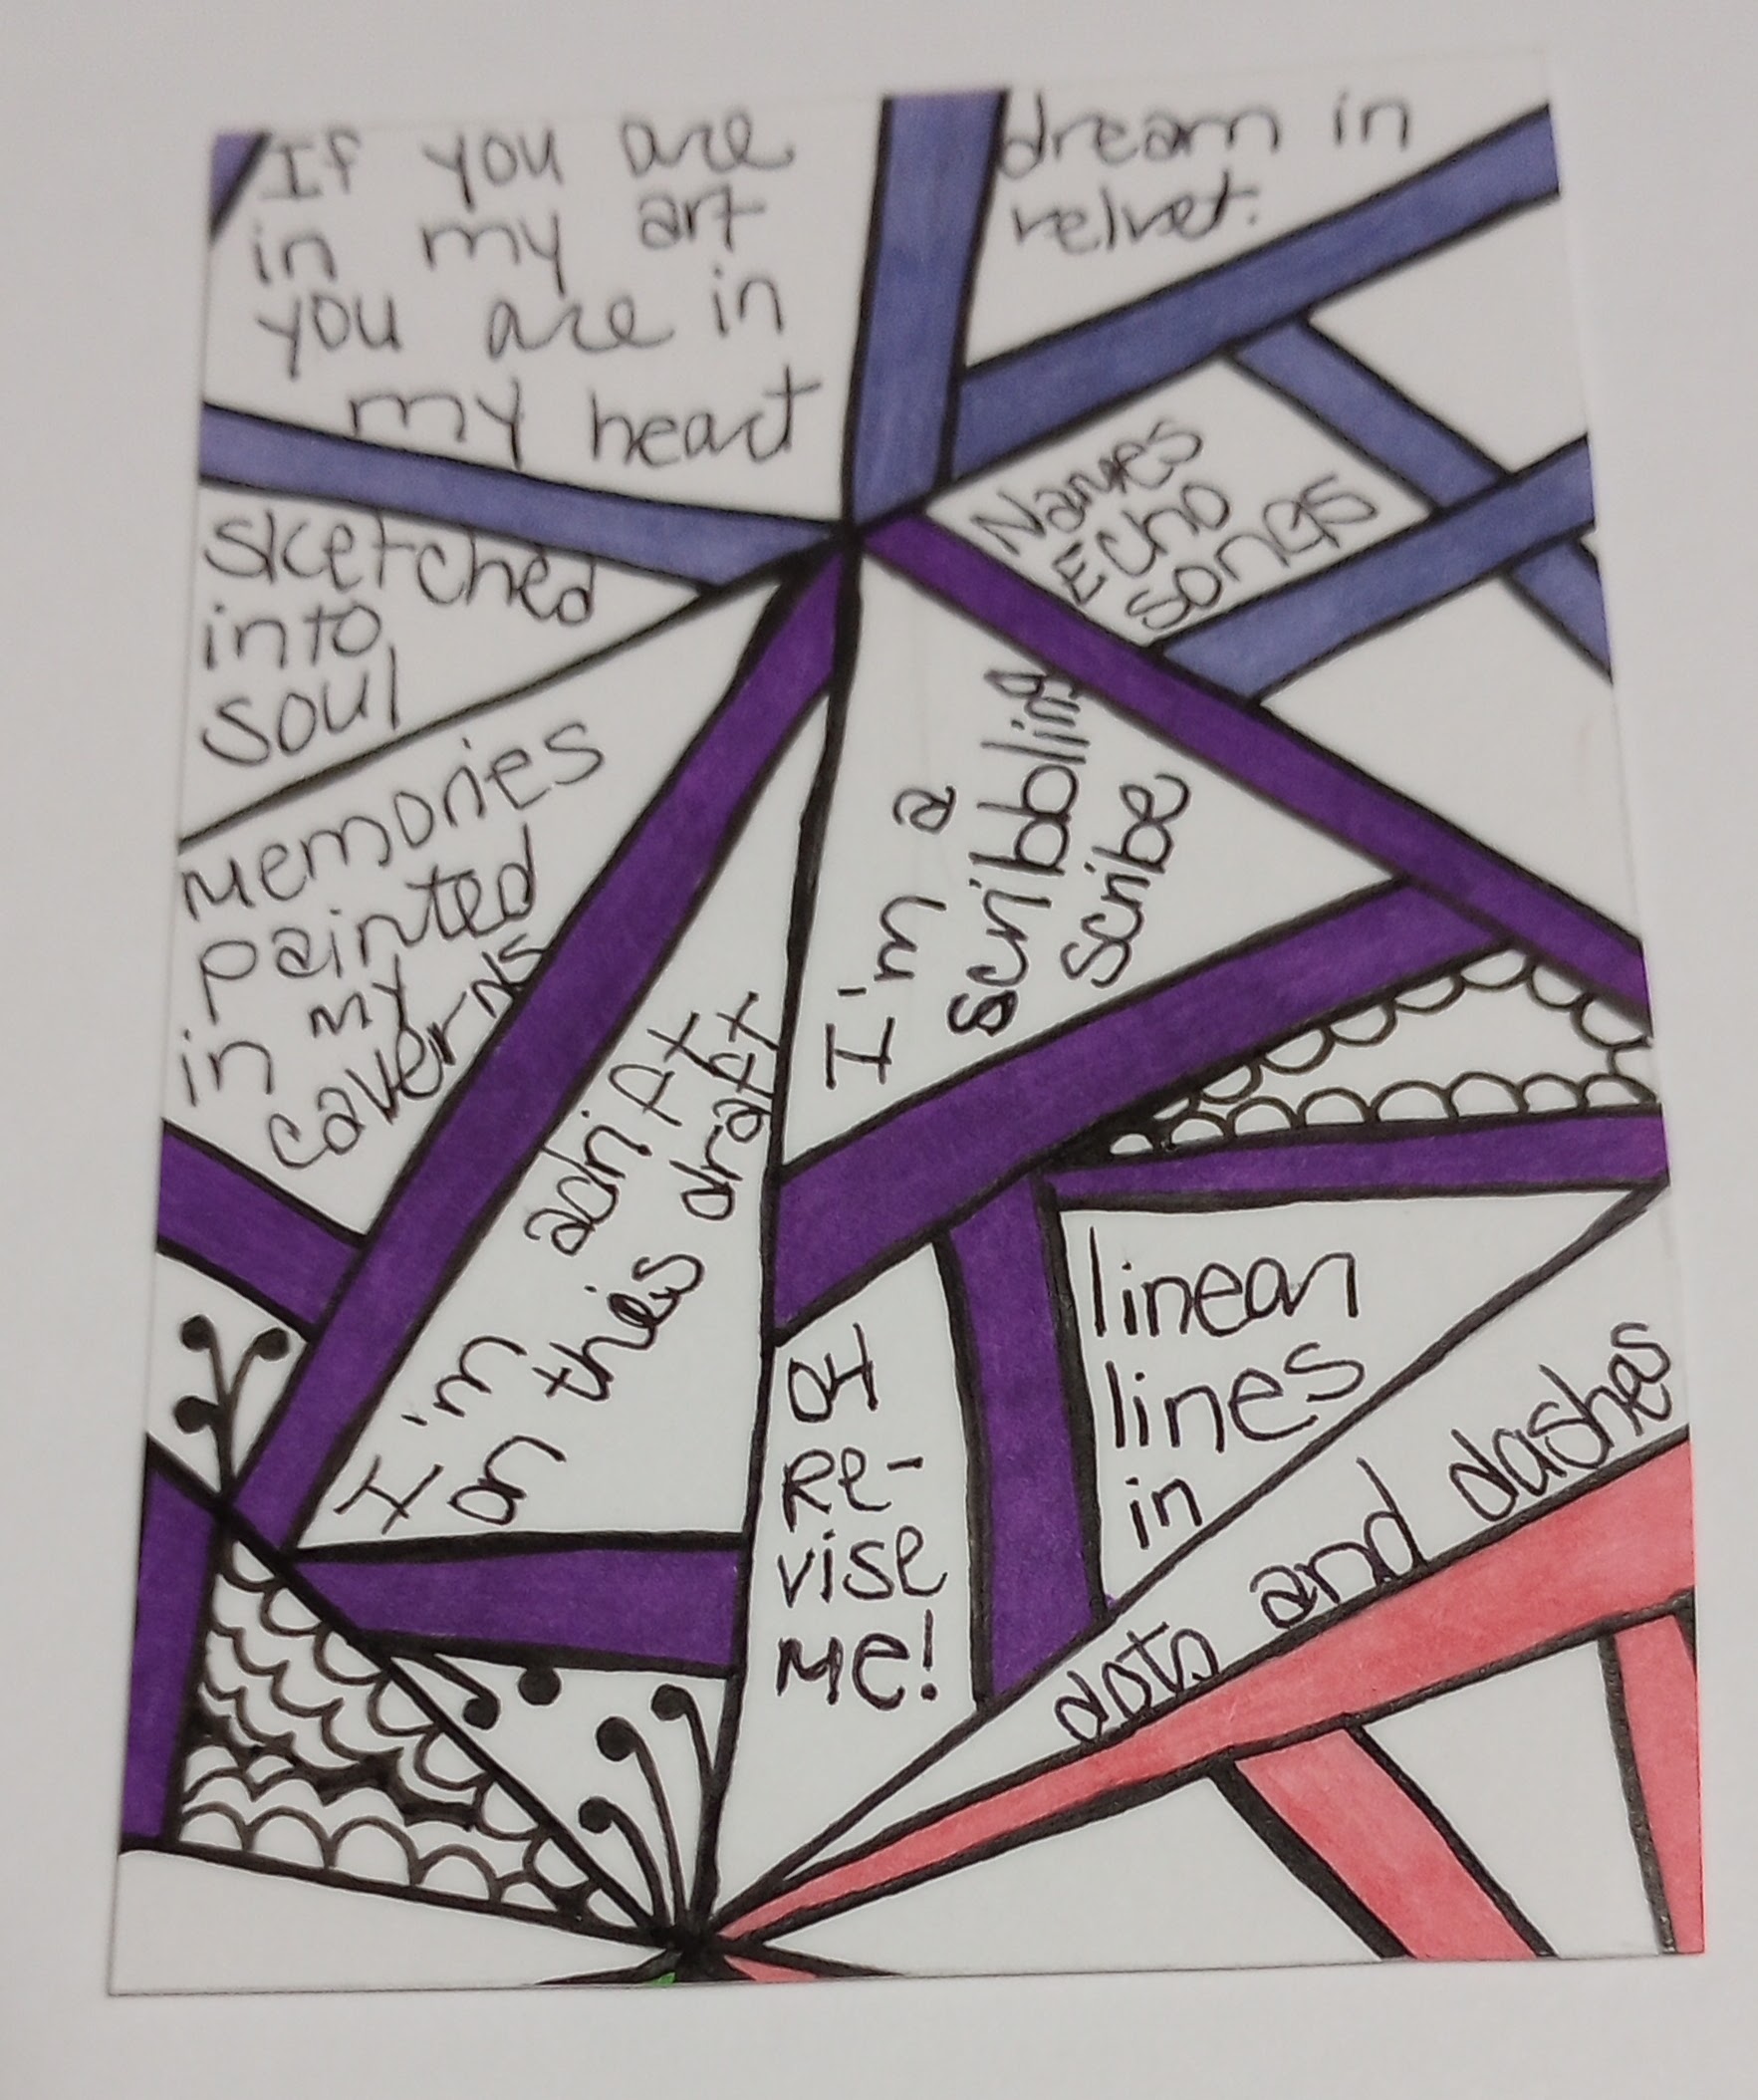 If you are
in my art
you are in
my heart
dream in
velvet.
sketched
into
soul
Names
Echo
songs
memories
painted
in my
caverns
I'm a
scribbling
scribe
I'm adrift
on this draft
OH
Re-
vise
me!
linear
lines
in
dots and dashes